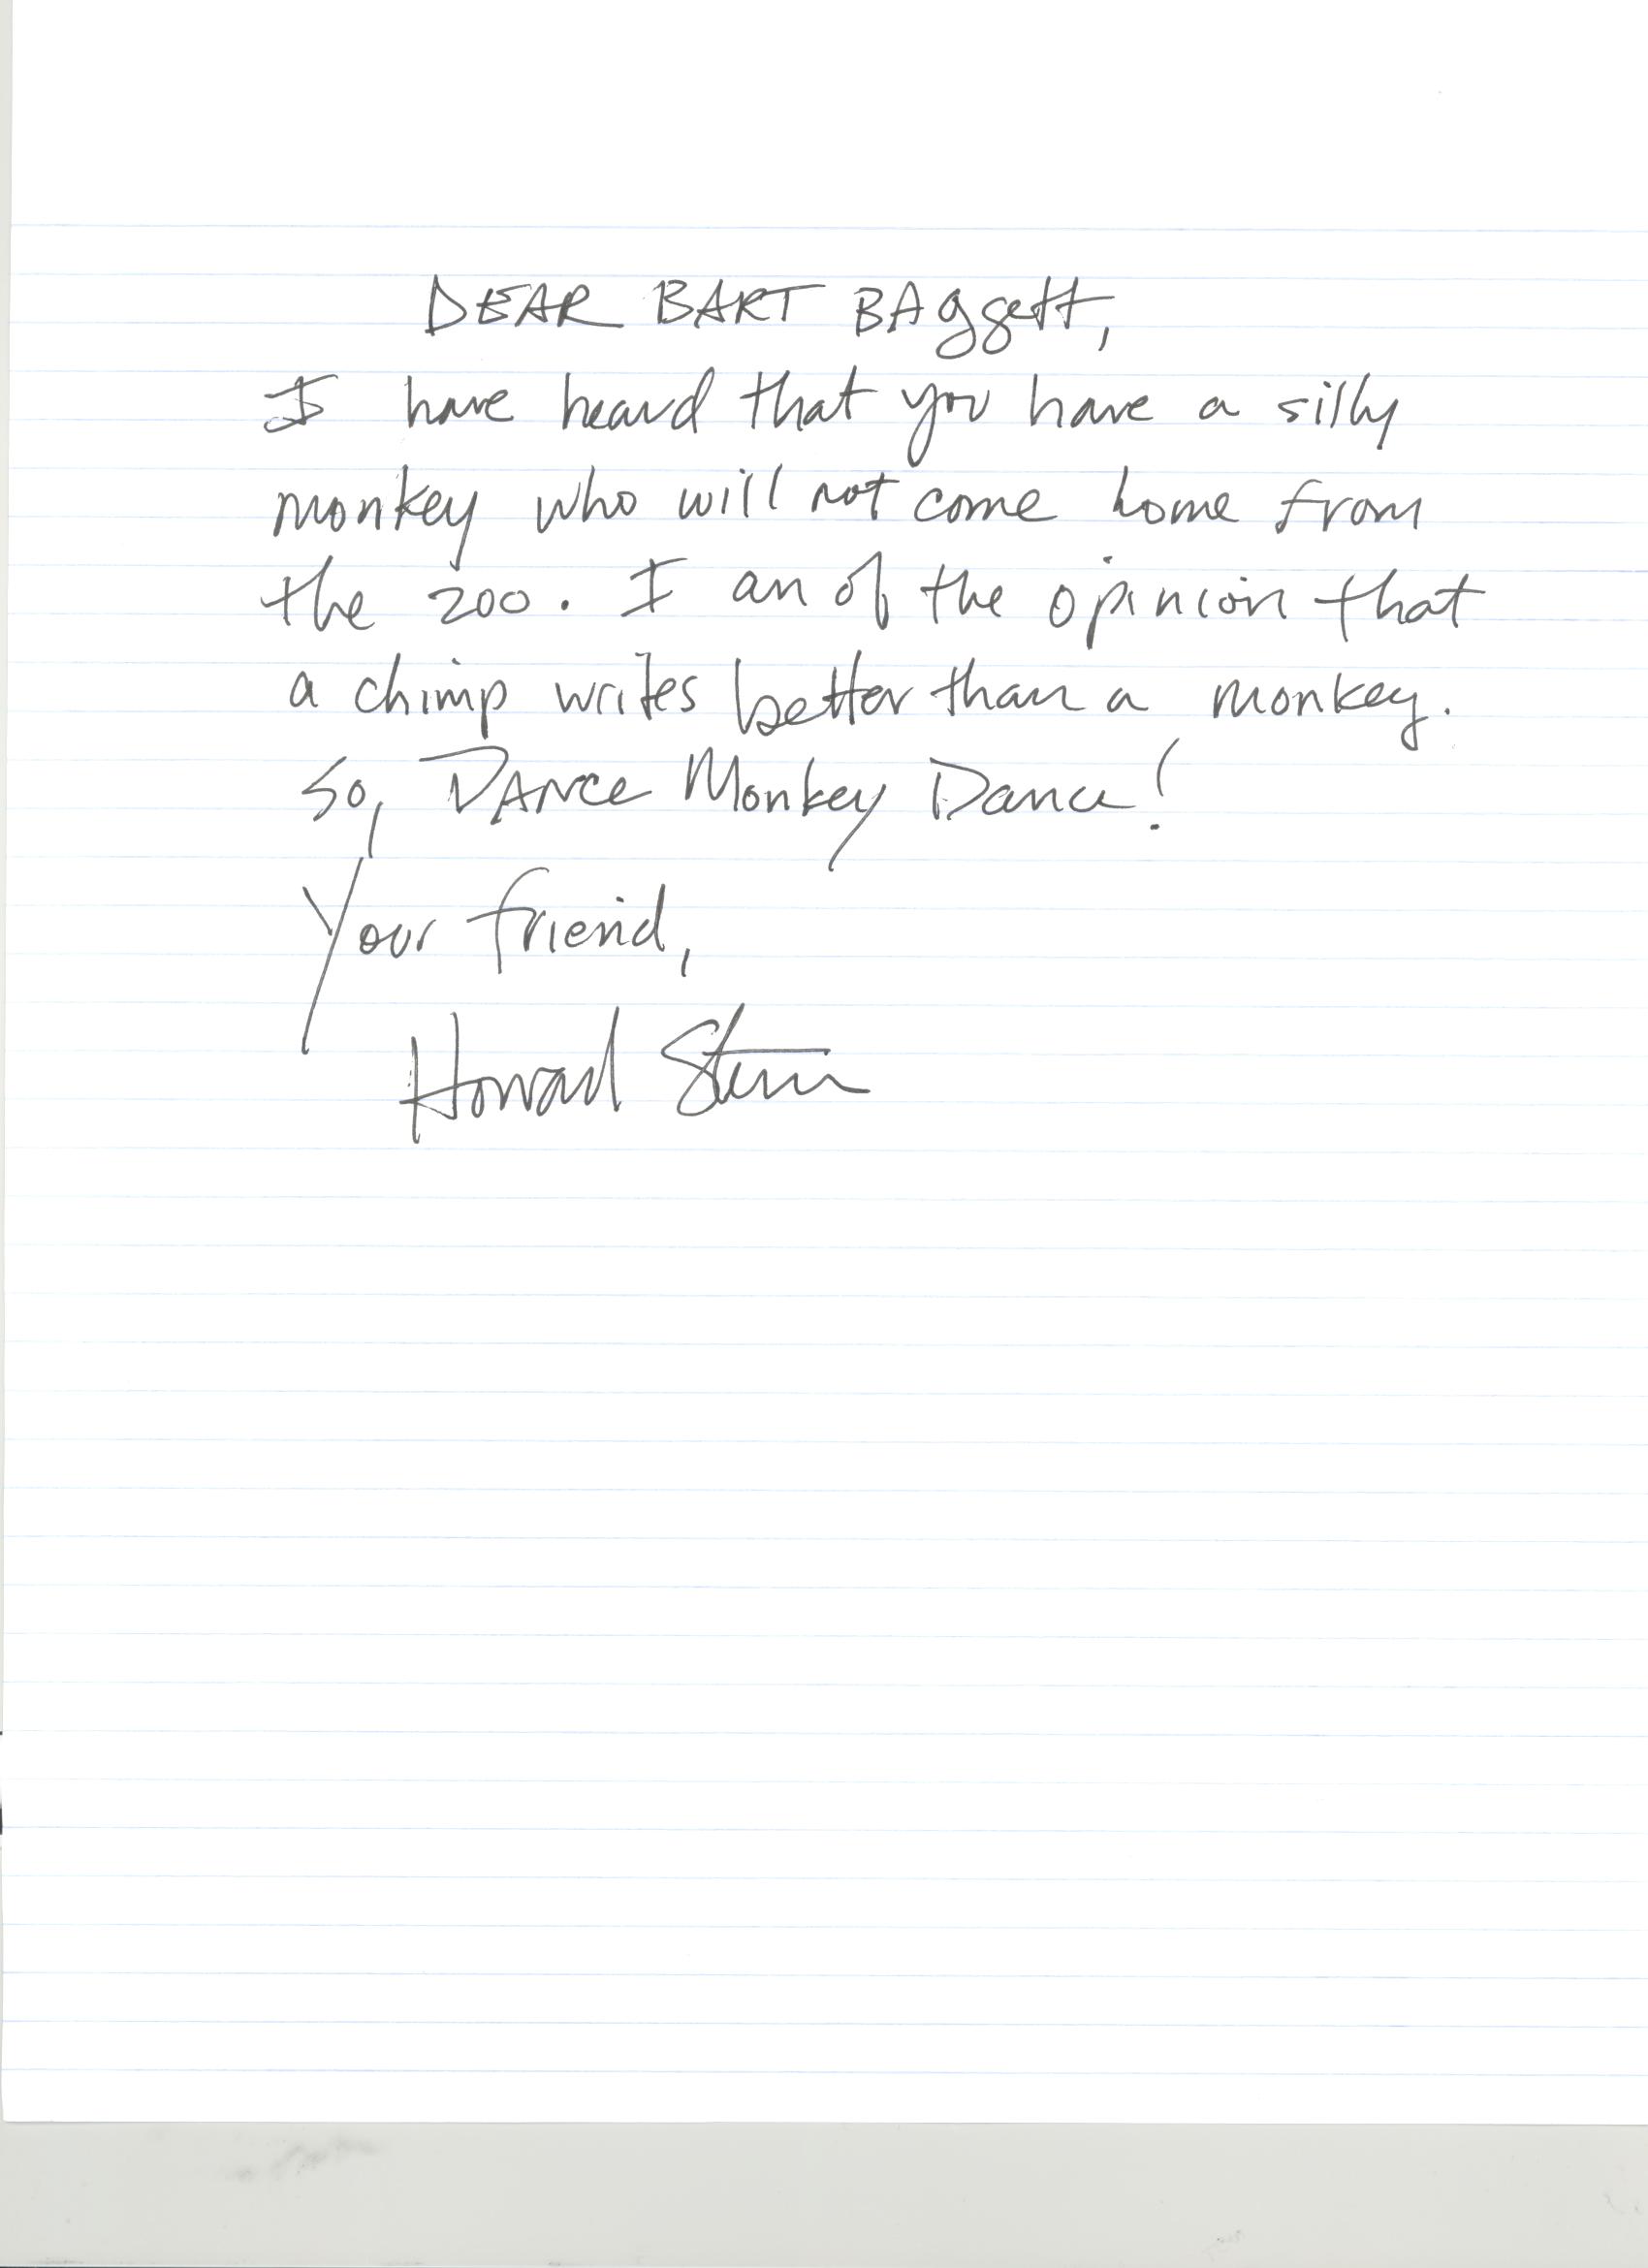 DEAR BART BAggett,
I have heard that you have a silly
monkey who will not come home from
the zoo. I am of the opinion that
a chimp writes better than a monkey.
So, DANCE Monkey Dance!
Your friend,
Howard Stern